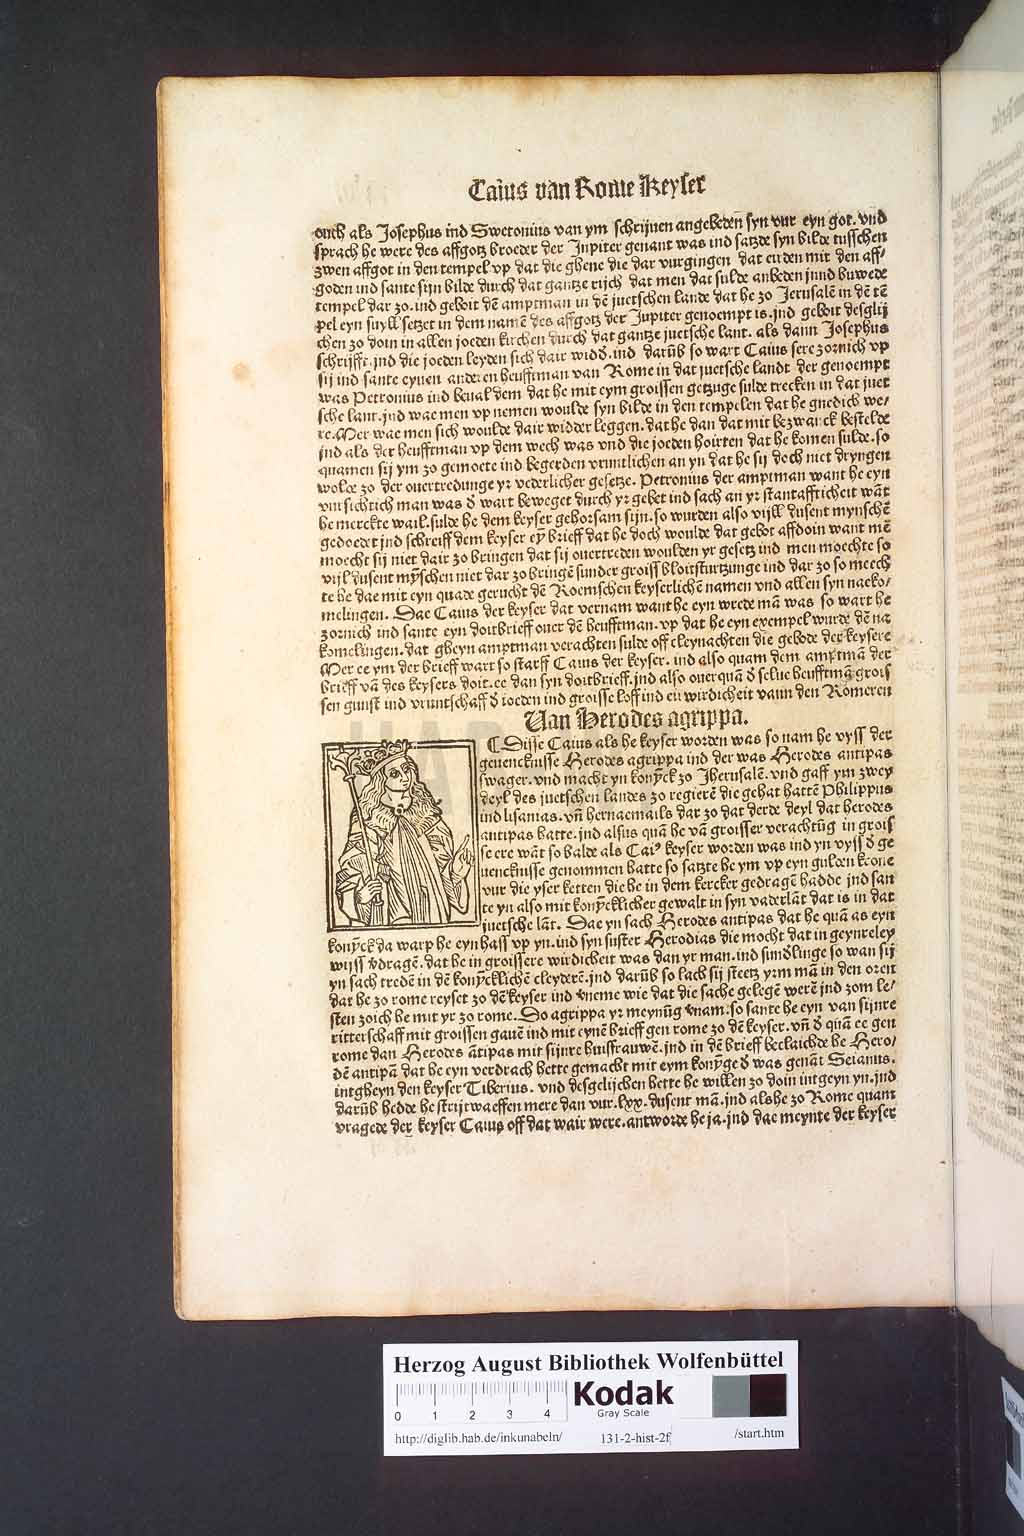 Caius van Rome Keyser
ouch als Josephus ind Swetonius van ym schrijuen angebeden syn vur eyn got. vnd
sprach he were des affgotz broeder der Jupiter genant was ind satzde syn bilde tusschen
zwen affgot in den tempel vp dat die ghene die dar vurgingen dat eirden mit den aff/
goden ind sante sijn bilde durch dat gantze rijch dat men dat sulde anbeden jnnd buwede
tempel dar zo. ind geboit dē amptman in dē juetschen lande dat he zo Jerusalē in dē tē
pel eyn suyll setzet in dem namē des affgotz der Jupiter genoempt is. jnd geboit desglij
chen zo doin in allen joeden kirchen durch dat gantze juetsche lant. als dann Josephus
schrijfft. jnd die joeden leyden sich dair widd̄. ind darūb so wart Caius sere zornich vp
sij ind sante eynen anderen heufftman van Rome in dat juetsche landt der genoempt
was Petronius ind beual dem dat he mit eym groissen getzuge sulde trecken in dat juet
sche lant. jnd wae men vp nemen woulde syn bilde in den tempelen dat he gnedich we/
re. Mer wae men sich woulde dair widder leggen. dat he dan dat mit bezwanck bestelde
jnd als der heufftman vp dem wech was vnd die joeden hoirten dat he komen sulde. so
quamen sij ym zo gemoete ind begerden vruntlichen an yn dat he sij doch niet dryngen
wolde zo der ouertredunge yr vederlicher gesetze. Petronius der amptman want he eyn
vursichtich man was d̄ wart beweget durch yr gebet ind sach an yr stantafftticheit wāt
he merckte wail. sulde he dem keyser gehorsam sijn. so wurden also vijll dusent mynschē
gedoedet jnd schreiff dem keyser eȳ brieff dat he doch woulde dat gebot affdoin want mē
moecht sij niet dair zo bringen dat sij ouertreden woulden yr gesetz ind men moechte so
vijl dusent mȳschen niet dar zo bringē sunder groiss bloitsturtzunge ind dar zo so meech
te he dae mit eyn quade gerucht dē Roemschen keyserlichē namen vnd allen syn naeko/
melingen. Dae Caius der keyser dat vernam want he eyn wrede mā was so wart he
zornich ind sante eyn doitbrieff ouer dē heufftman. vp dat he eyn exempel wurde dē na
komelingen. dat gheyn amptman verachten sulde off cleynachten die gebode der keysere
Mer ee ym der brieff wart so starff Caius der keyser. ind also quam dem amptmā der
brieff vā des keysers doit. ee dan syn doitbrieff. jnd also ouerquā d̄ selue heufftmā grois
sen gunst ind vruntschaff d̄ ioeden ind groisse loff ind eu wirdicheit vann den Romeren
Van Herodes agrippa.
Disse Caius als he keyser worden was so nam he vyss der
geuenckmisse Herodes agrippa ind der was Herodes antipas
swager. vnd macht yn konȳck zo Jherusalē. vnd gaff ym zwey
deyl des juetschen landes zo regierē die gehat hattē Philippus
ind lisanias. vn̄ hernaemails dar zo dat derde deyl dat herodes
antipas hatte. jnd alsus quā he vā groisser verachtūg in grois
se ere wāt so balde als Caiꝰ keyser worden was ind yn vyss d̄ ge
uenckmisse genommen hatte so satzte he ym vp eyn gulden krone
vur die yser ketten die he in dem kercker gedragē hadde jnd san
te yn also mit konȳcklicher gewalt in syn vaderlāt dat is in dat
juetsche lāt. Dae yn sach Herodes antipas dat he quā as eyn
konȳck da warp he eyn hass vp yn. ind syn suster Herodias die mocht dat in geynreley
wijss v̄dragē. dat he in groissere wirdicheit was dan yr man. ind sundlinge so wan sij
yn sach tredē in dē konȳcklichē cleyderē. jnd darūb so lach sij steetz yrm mā in den oren
dat he zo rome reyset zo dē keyser ind v̄neme wie dat die sache gelegē werē jnd zom le/
sten zoich he mit yr zo rome. Do agrippa yr meynūg v̄nam. so sante he eyn van sijnre
ritterschaff mit groissen gauē ind mit eynē brieff gen rome zo dē keyser. vn̄ d̄ quā ee gen
rome dan Herodes ātipas mit sijnre huissfrauwē. jnd in dē brieff beclaichde he Hero/
dē antipā dat he eyn verdrach hette gemacht mit eym konȳge d̄ was genāt Seianus.
intgheyn den keyser Tiberius. vnd desgelijchen hette he willen zo doin intgeyn yn. jnd
darūb hedde he strijtwaeffen mere dan vur. lxx. dusent mā. jnd als he zo Rome quam
vragede der keyser Caius off dat wair were. antworde he ja. jnd dae meynte der keyser
Herzog August Bibliothek Wolfenbüttel
0 1 2 3 4
Kodak
Gray Scale
http://diglib.hab.de/inkunabeln/ 131-2-hist-2f /start.htm